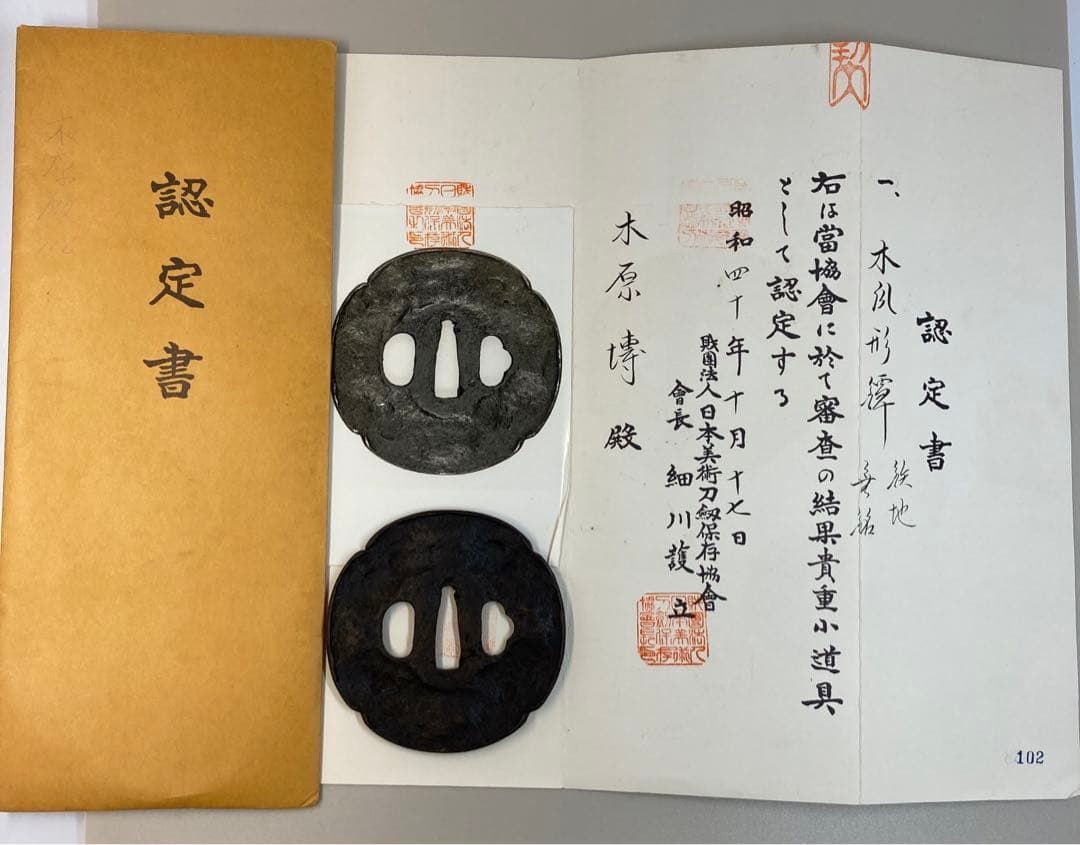 認定書
認定書
一、木瓜形鐔 鉄地
無銘
右は當協會に於て審査の結果貴重小道具
として認定する
昭和四十年十月十七日
財團法人日本美術刀劔保存協會
會長 細川護立
木原博殿
102